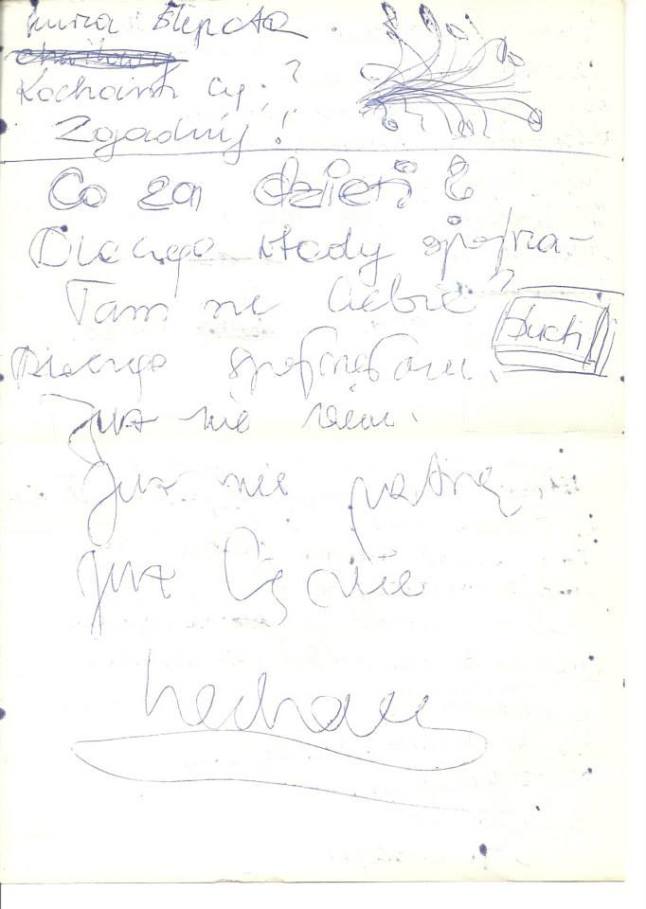 kurza ślepota
Kocham Cię?
Zgadnij!
Co za dzień
Dlaczego wtedy spojrza-
łam na Ciebie?
Dlaczego spojrzałam.
Już nie wiem.
Już nie patrzę
Już Cię nie
kocham